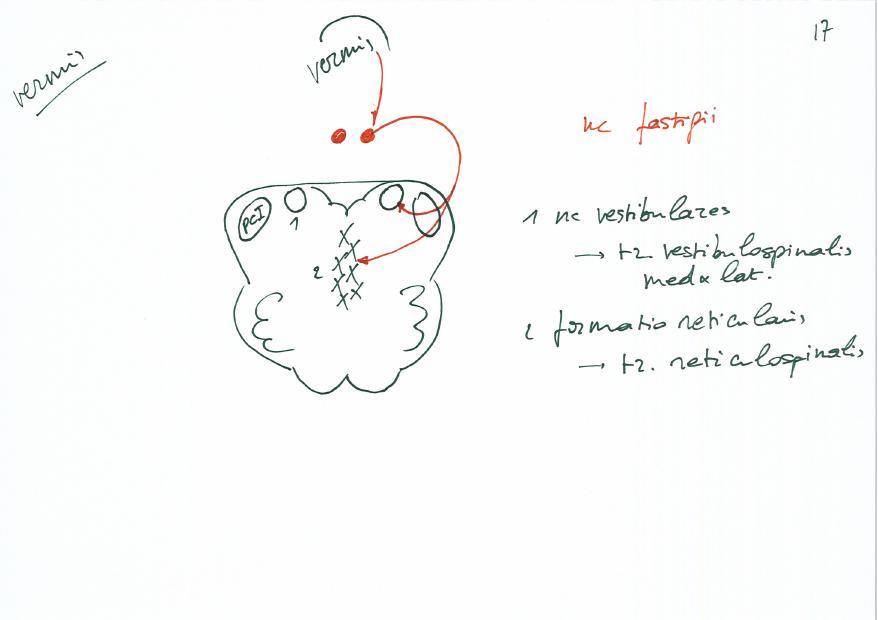 17
vermis
vermis
nc fastigii
PCI
1
2
1 nc vestibulares
→ tr. vestibulospinalis
med & lat.
2 formatio reticularis
→ tr. reticulospinalis